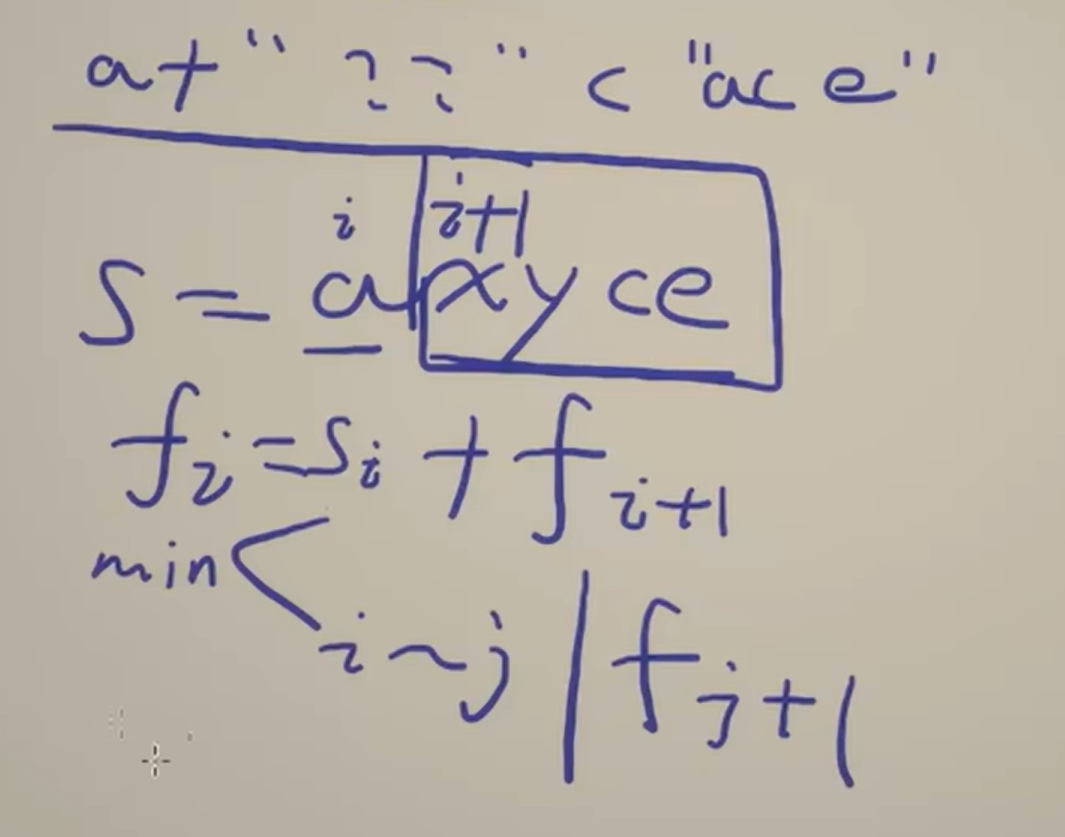 a+"??" < "ace"
i i+1
S = axyce
fi=Si + fi+1
min
i~j | fj+1